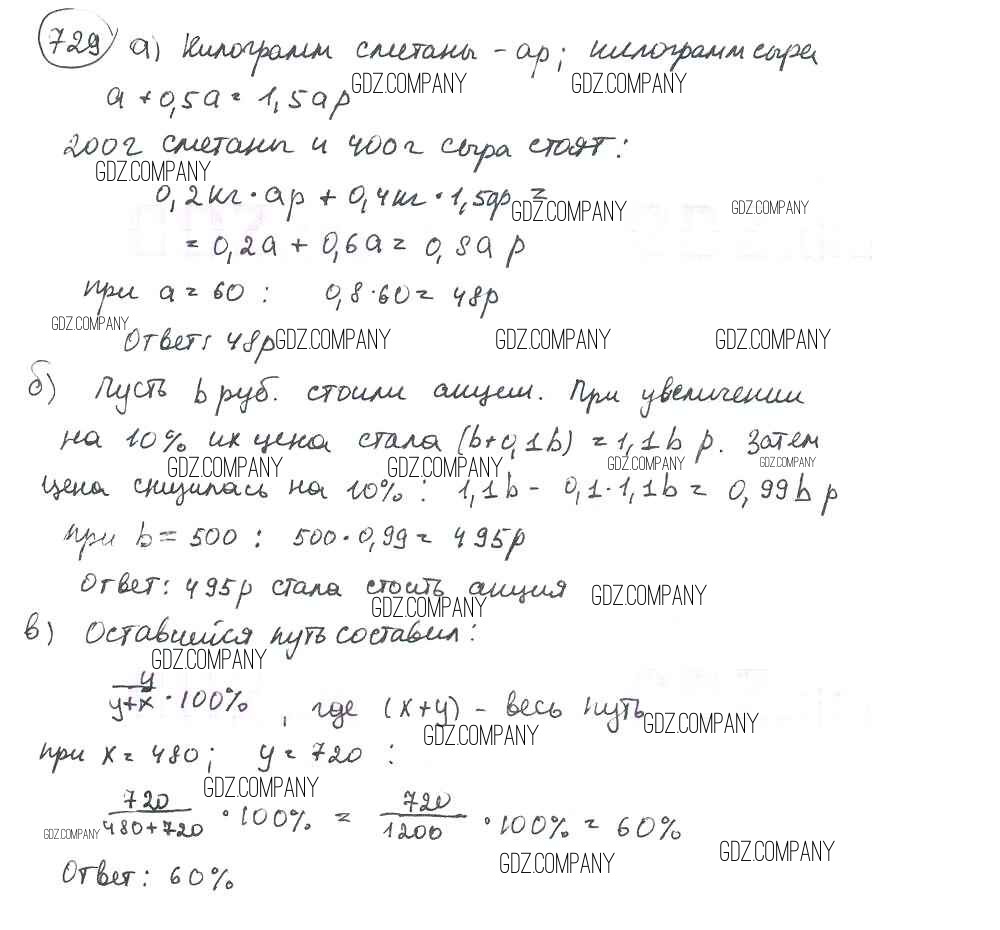 729 а) Килограмм сметаны - ар; килограмм сыра
GDZ.COMPANY GDZ.COMPANY
а + 0,5а = 1,5ар
200г сметаны и 400г сыра стоят:
GDZ.COMPANY
0,2кг · ар + 0,4кг · 1,5ар =
GDZ.COMPANY GDZ.COMPANY
= 0,2а + 0,6а = 0,8а р
при а = 60 : 0,8·60 = 48р
GDZ.COMPANY
Ответ: 48р GDZ.COMPANY GDZ.COMPANY GDZ.COMPANY
б) Пусть b руб. стоили акции. При увеличении
на 10% их цена стала (b+0,1b) = 1,1b р. Затем
GDZ.COMPANY GDZ.COMPANY GDZ.COMPANY GDZ.COMPANY
цена снизилась на 10% : 1,1b - 0,1·1,1b = 0,99b р
при b = 500 : 500·0,99 = 495р
Ответ: 495р стала стоить акция GDZ.COMPANY
GDZ.COMPANY
в) Оставшийся путь составил:
GDZ.COMPANY
y/(y+x) · 100% , где (x+y) - весь путь
GDZ.COMPANY GDZ.COMPANY
при x = 480; y = 720 :
GDZ.COMPANY
720/(480+720) · 100% = 720/1200 · 100% = 60%
GDZ.COMPANY GDZ.COMPANY GDZ.COMPANY
Ответ: 60%